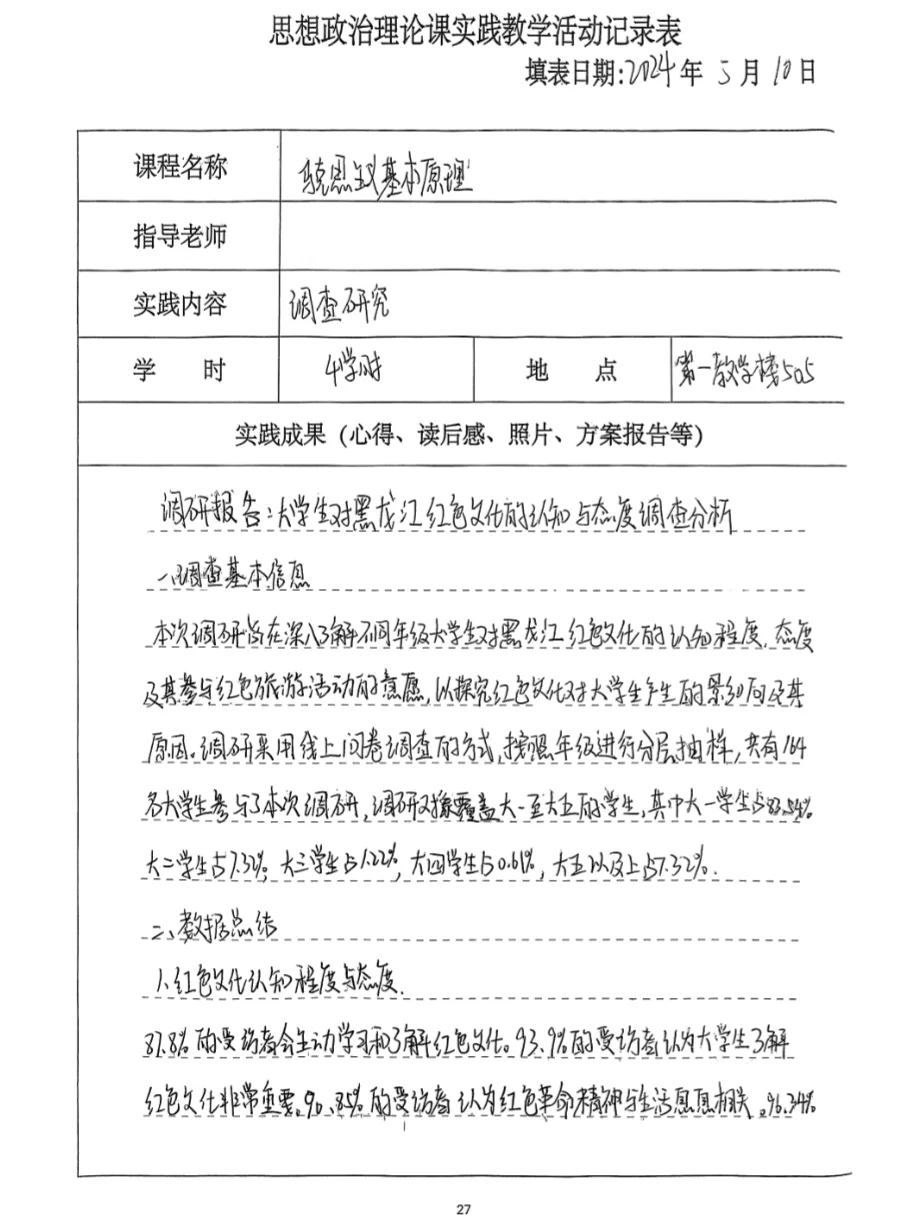 思想政治理论课实践教学活动记录表
填表日期:2024年 5月 10日
课程名称 马克思主义基本原理
指导老师
实践内容 调查研究
学 时 4学时 地 点 第一教学楼505
实践成果（心得、读后感、照片、方案报告等）
调研报告：大学生对黑龙江红色文化的认知与态度调查分析
一、调查基本信息
本次调研旨在深入了解不同年级大学生对黑龙江红色文化的认知程度、态度
及其参与红色旅游活动的意愿，以探究红色文化对大学生产生的影响及其
原因。调研采用线上问卷调查的方式，按照年级进行分层抽样，共有164
名大学生参与了本次调研，调研对象覆盖大一至大五的学生，其中大一学生占83.54%
大二学生占7.32%，大三学生占1.22%，大四学生占0.61%，大五以及上占7.32%.
二、数据总结
1.红色文化认知程度与态度.
87.8%的受访者会主动学习和了解红色文化。93.9%的受访者认为大学生了解
红色文化非常重要。90.85%的受访者认为红色革命精神与生活息息相关。96.34%
27